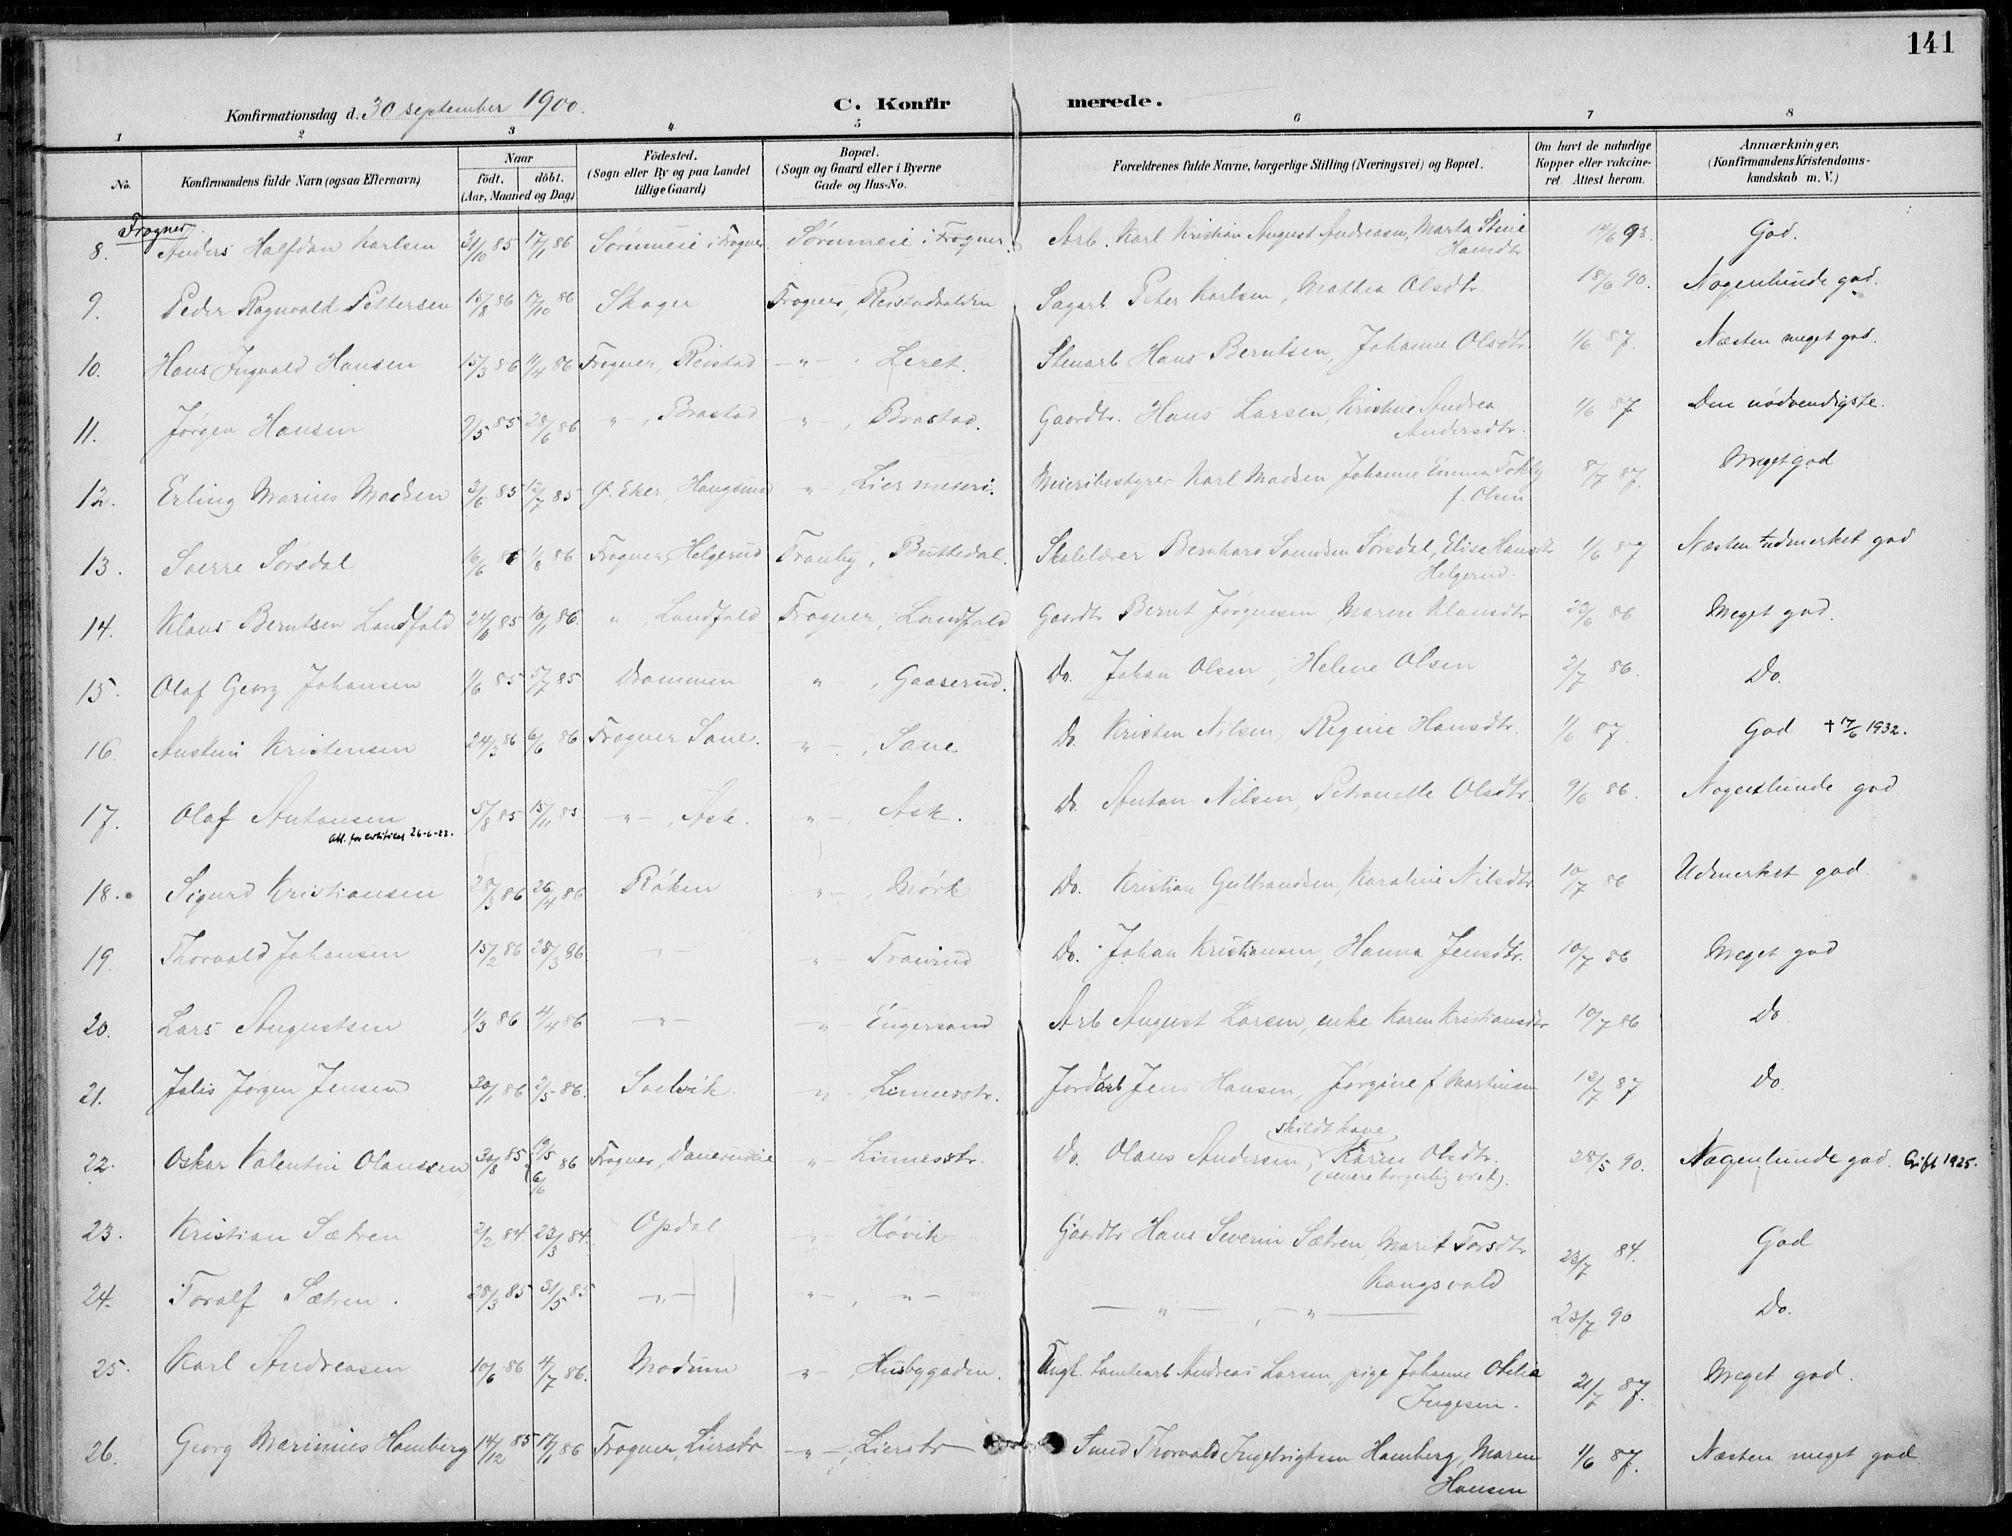 141
Konfirmationsdag d. 30 september 1900.
C. Konfirmerede.
1 2 3 4 5 6 7 8
No.
Konfirmandens fulde Navn (ogsaa Efternavn)
Naar
født. døbt.
(Aar, Maaned og Dag)
Födested.
(Sogn eller By og paa Landet
tillige Gaard)
Bopæl.
(Sogn og Gaard eller i Byerne
Gade og Hus-No.
Forældrenes fulde Navne, borgerlige Stilling (Næringsvei) og Bopæl.
Om havt de naturlige
Kopper eller vakcine-
ret. Attest herom.
Anmærkninger.
(Konfirmandens Kristendoms-
kundskab m. V.)
Frogner.
8. Anders Halfdan Karlsen 31/10 85 17/1 86 Sørumeie i Frogner Sørumeie i Frogner. Arb. Karl Kristian August Andreasen, Marta Stine 14/6 93 God.
Hansdtr
9. Peder Ragnvald Pettersen 15/8 86 17/10 86 Skoger Frogner, Reistadbakken Sagarb. Peter Karlsen, Mathea Olsdtr 18/6 90. Nogenlunde god.
10. Hans Ingvald Hansen 15/3 86 11/4 86 Frogner, Reistad -"- Leret. Stenarb Hans Berntsen, Johanne Olsdtr. 1/6 87. Næsten meget god.
11. Jørgen Hansen 9/5 85 28/6 86 -"-, Brastad -"-, Brastad. Gaardbr. Hans Larsen, Kristine Andrea 1/6 87 Den nödvendigste.
Andersdtr.
12. Erling Marius Madsen 3/6 85 12/7 85 Ø. Eker, Haugsund "-, Lier meieri. Meieribestyrer Karl Madsen Johanne Emma 8/7 87. Meget god
f. Olsen
13. Sverre Sørsdal 16/6 86 1/8 86 Frogner, Helgerud Tranby, Buttedal. Skolelærer Bernhard Sørsdal, Elise Hansdtr 1/6 87 Næsten udmerket god
Helgerud.
14. Klaus Berntsen Landfald 24/11 85 10/1 86. ", Landfald Frogner, Landfald Gaardbr Bernt Jørgensen, Maren Klausdtr 23/6 86 Meget god.
15. Olaf Georg Johansen 1/6 85 5/7 85 Drammen "-, Gaaserud. Do. Johan Olsen, Helene Olsen 2/7 86. Do.
16. Austin Kristensen 24/3 86 6/6 86 Frogner Sane. "-, Sane Do. Kristen Nilsen, Regine Hansdtr. 1/6 87. God † 17/6 1932.
17. Olaf Antonsen 5/8 85 15/11 85 -"-, Ask. "-, Ask. Do. Anton Nilsen, Petronelle Olsdtr. 9/6 86. Nogenlunde god
26-6-22.
18. Sigurd Kristiansen 28/3 86 26/4 86 Røken "-, Mörk Do. Kristian Gulbrandsen, Karoline Nilsdtr 10/7 86 Udmerket god.
19. Thorvald Johansen 15/2 86 28/3 86 -"- "- Do. Johan Kristiansen, Hanna Jensdtr. 10/7 86 Meget god
20. Lars Augustsen 1/3 86 4/4 86 -"- "- Engersand Arb August Larsen, enke Karen Kristiansdtr 10/7 86 Do
21. Julis Jørgen Jensen 30/1 86 2/5 86. Svelvik. "-, Linnesstr. Jordarb Jens Hansen, Jørgine f Martinsen 12/7 87 Do.
skildt kone
22. Oskar Valentin Olaussen 30/8 85 6/6 86 Frogner, "- Linnesstr. Do. Olaus Andersen, Karen Olsdtr. 28/5 90. Nogenlunde god. Gift 1925.
(senere borgerlig viet).
23. Kristian Sætren 2/2 84 23/3 84. Opdal "- Høvik Gaardbr Hans Severin Sætren, Marit Torsdtr 23/7 84. God
Kongsvold
24. Toralf Sætren. 28/3 85 31/5 85 -"- "-, -"- -"-, -"- 23/7 90 Do.
25. Karl Andreasen 10/6 86 4/7 86. Modum "-, Husbygaden. Ungk. Andreas Larsen, pige Johanne Otilia 21/7 87. Meget god.
Ingesen.
26. Georg Marinius Hamberg 14/12 85 17/1 86 Frogner, Lierstr -"-, Lierstr Smed Thorvald Ingebrigtsen Hamberg, Maren 1/6 87. Næsten meget god
Hansen